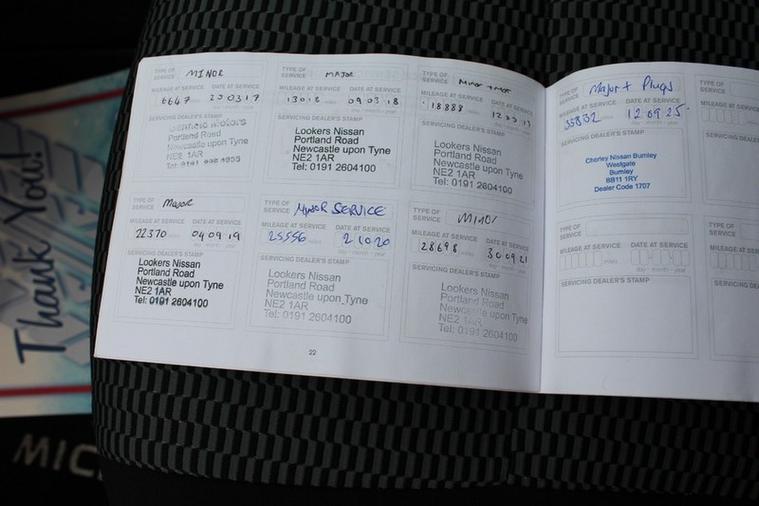 TYPE OF SERVICE MINOR
MILEAGE AT SERVICE DATE AT SERVICE
6647 miles 20 03 17
SERVICING DEALER'S STAMP
Portland Road
Newcastle upon Tyne
NE2 1AR
TYPE OF SERVICE MAJOR
MILEAGE AT SERVICE DATE AT SERVICE
13012 09 03 18
Lookers Nissan
Portland Road
Newcastle upon Tyne
NE2 1AR
Tel: 0191 2604100
TYPE OF SERVICE
MILEAGE AT SERVICE DATE AT SERVICE
18888
SERVICING DEALER'S STAMP
Lookers Nissan
Portland Road
Newcastle upon Tyne
NE2 1AR
Tel: 0191 2604100
TYPE OF SERVICE Major
MILEAGE AT SERVICE DATE AT SERVICE
22370 04 09 19
SERVICING DEALER'S STAMP
Lookers Nissan
Portland Road
Newcastle upon Tyne
NE2 1AR
Tel: 0191 2604100
TYPE OF SERVICE MINOR SERVICE
MILEAGE AT SERVICE DATE AT SERVICE
25556 miles 2 10 20
day - month - year
SERVICING DEALER'S STAMP
Lookers Nissan
Portland Road
Newcastle upon Tyne
NE2 1AR
Tel: 0191 2604100
TYPE OF SERVICE MINOR
MILEAGE AT SERVICE DATE AT SERVICE
28698 miles 30 09 21
day - month - year
SERVICING DEALER'S STAMP
Lookers Nissan
Portland Road
Newcastle upon Tyne
NE2 1AR
Tel: 0191 2604100
22
TYPE OF SERVICE Major + Plugs
MILEAGE AT SERVICE DATE AT SERVICE
35832 miles 12 09 25
day - month - year
SERVICING DEALER'S STAMP
Chorley Nissan Burnley
Westgate
Burnley
BB11 1RY
Dealer Code 1707
TYPE OF SERVICE
MILEAGE AT SERVICE
SERVICING DEALER'S
TYPE OF SERVICE
MILEAGE AT SERVICE DATE AT SERVICE
miles day - month - year
SERVICING DEALER'S STAMP
TYPE OF SERVICE
MILEAGE AT
SERVICING
Thank You!
MIC